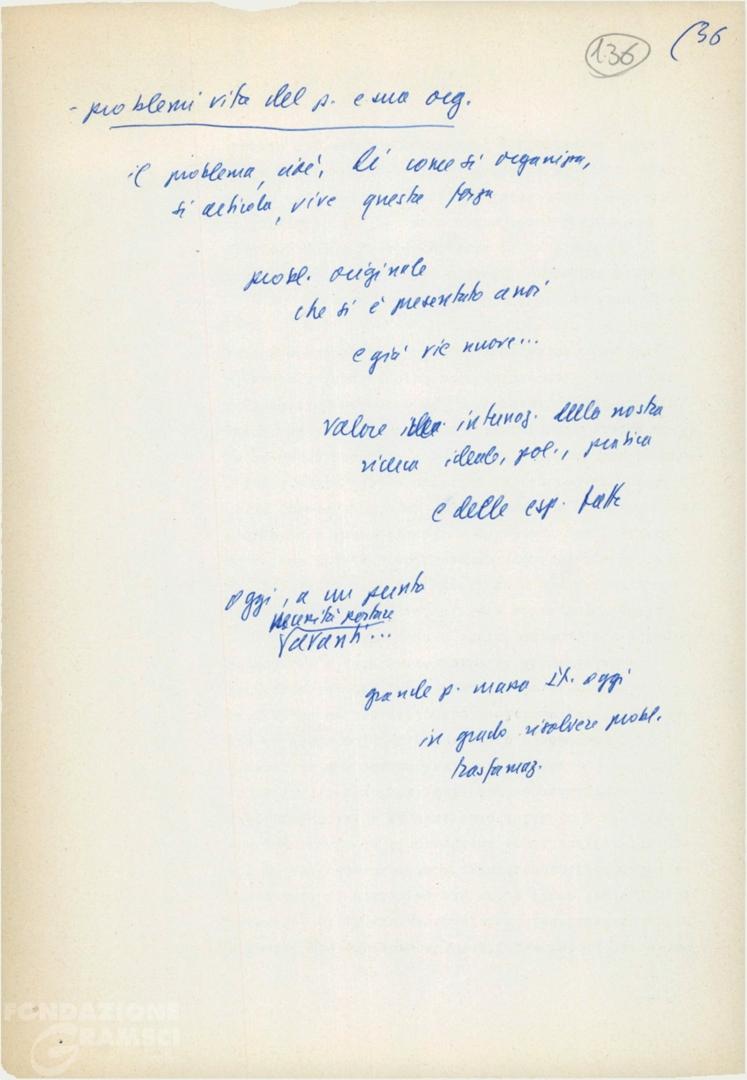 136
(36
- problemi vita del p. e sua org.
il problema, cioè, di come si organizza,
si articola, vive questa forza
probl. originale
che si è presentato a noi
e già vie nuove...
valore internaz. della nostra
ricerca ideale, pol., pratica
e delle esp. fatte
oggi, a un punto
necessità portare
avanti...
grande p. massa it. oggi
in grado risolvere probl.
trasformaz.
FONDAZIONE
GRAMSCI